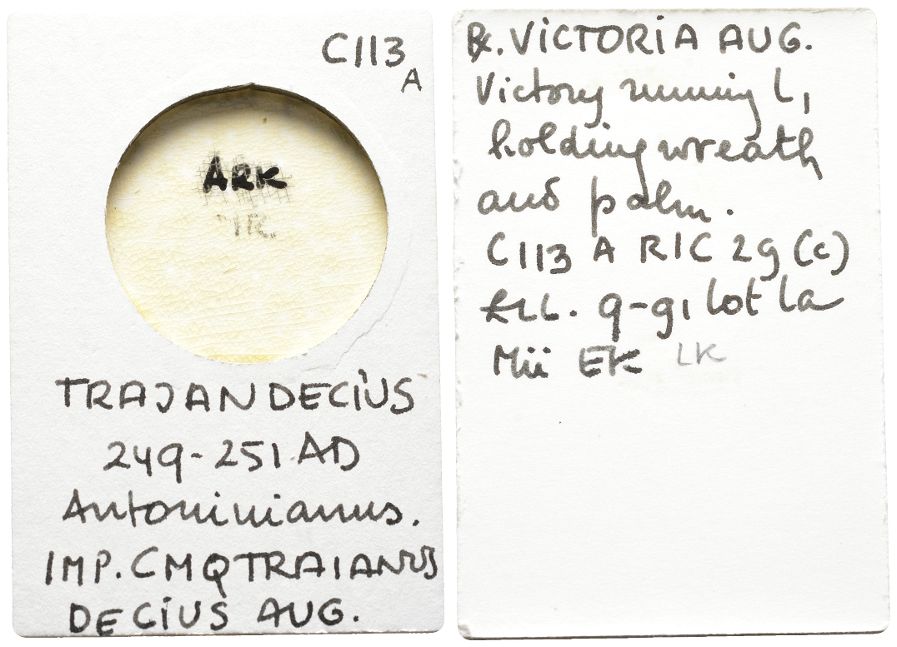 C113
A
ARK
TRAJAN DECIUS
249-251 AD
Antoninianus.
IMP. CMQTRAIANUS
DECIUS AUG.
R. VICTORIA AUG.
Victory running L,
holding wreath
and palm.
C113 A RIC 29 (c)
lot
EK LK